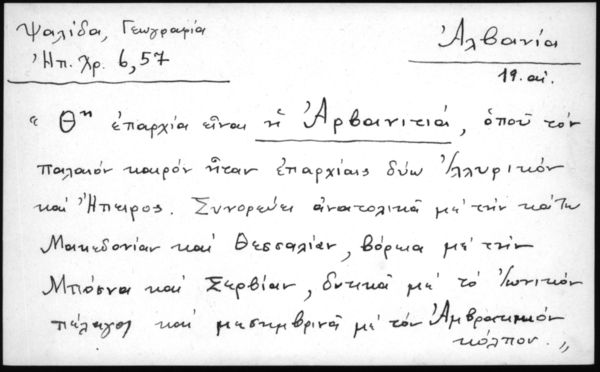 Ψαλίδα, Γεωγραφία
Ἠπ. Χρ. 6,57
Ἀλβανία
19. αἰ.
" Θη ἐπαρχία εἶναι ἡ Ἀρβανιτιά, ὁποῦ τὸν
παλαιὸν καιρὸν ἦταν ἐπαρχίαις δύω Ἰλλυρικὸν
καὶ Ἤπειρος. Συνορεύει ἀνατολικὰ μὲ τὴν κάτω
Μακεδονίαν καὶ Θεσσαλίαν, βόρεια μὲ τὴν
Μπόσνα καὶ Σερβίαν, δυτικὰ μὲ τὸ Ἰωνικὸν
πέλαγος καὶ μεσημβρινὰ μὲ τὸν Ἀμβρακικὸν
κόλπον. "